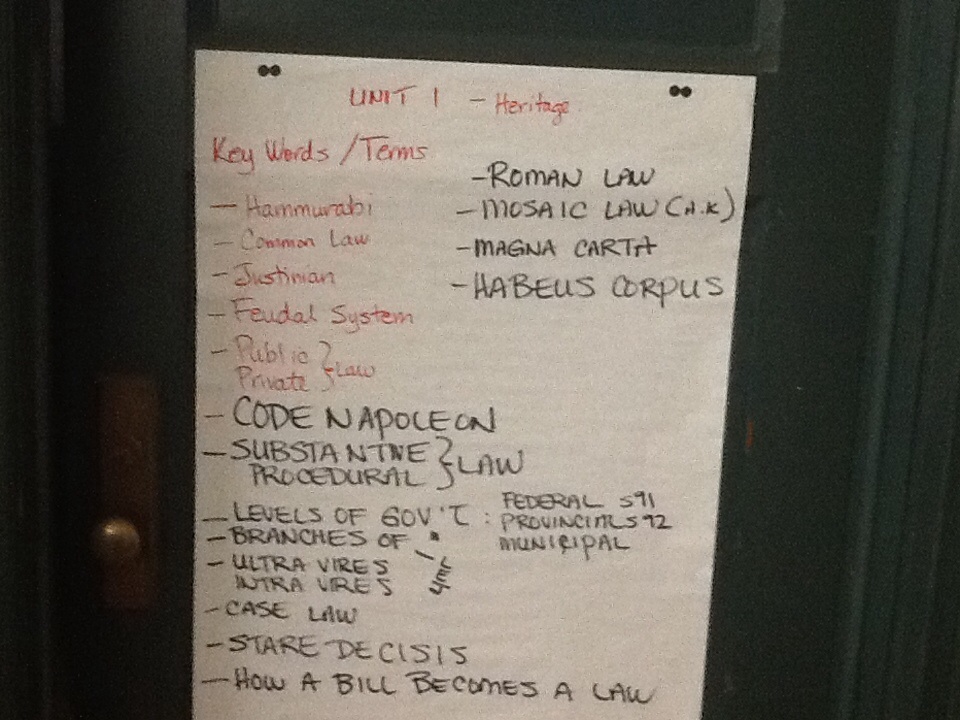 UNIT 1 - Heritage
Key Words / Terms
- Hammurabi
- Common Law
- Justinian
- Feudal System
- Public
Private } Law
- CODE NAPOLEON
- SUBSTANTIVE
PROCEDURAL } LAW
- LEVELS OF GOV'T : FEDERAL S91
PROVINCIAL S92
MUNICIPAL
- BRANCHES OF "
- ULTRA VIRES
INTRA VIRES
- CASE LAW
- STARE DECISIS
- HOW A BILL BECOMES A LAW
- ROMAN LAW
- MOSAIC LAW (H.K)
- MAGNA CARTA
- HABEUS CORPUS